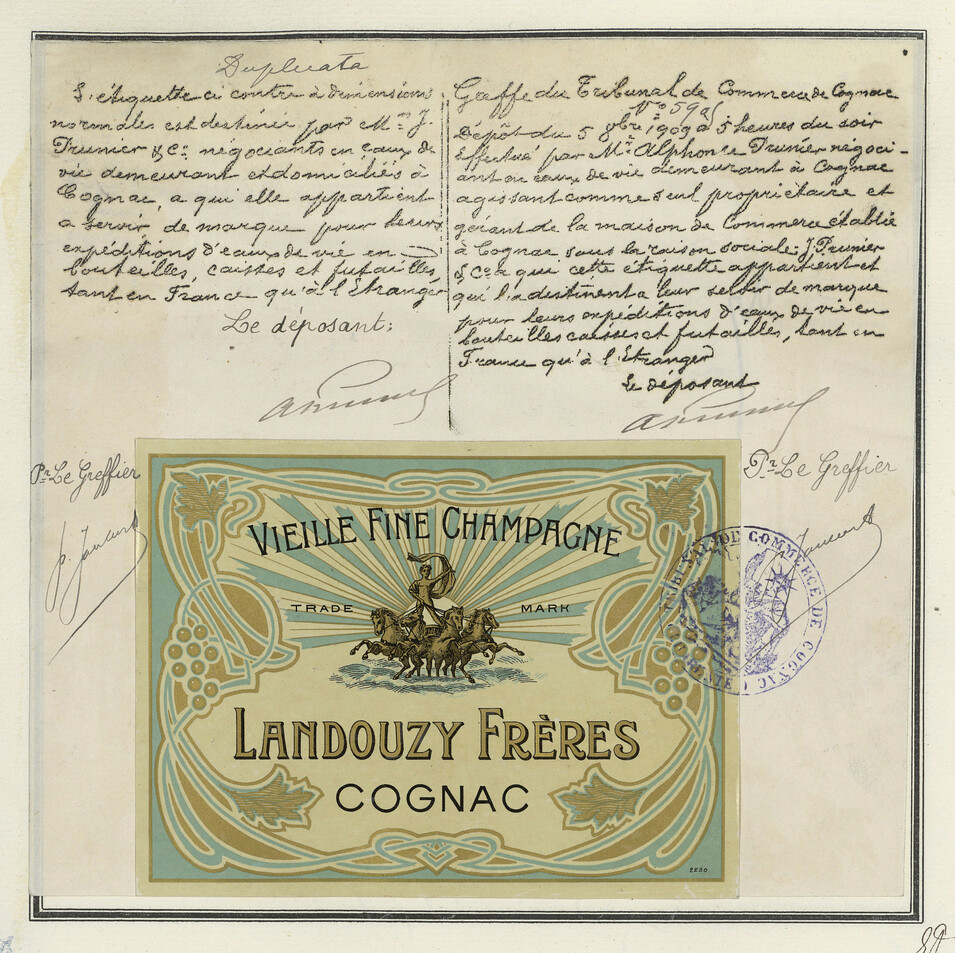 Duplicata
L'étiquette ci contre à dimensions
normales est destinée par Mrs J.
Prunier & Co négociants en eaux de
vie demeurant et domiciliés à
Cognac, a qui elle appartient
a servir de marque pour leurs
expéditions d'eaux de vie en
bouteilles, caisses et futailles,
tant en France qu'à l'Etranger
Le déposant:
APrunier
Greffe du Tribunal de Commerce de Cognac
Dépôt du 5 8bre 1909 à 5 heures du soir
Effectué par Mr Alphonse Prunier négoci-
ant en eaux de vie demeurant à Cognac
agissant comme seul propriétaire et
gérant de la maison de Commerce établie
à Cognac sous la raison sociale: J. Prunier
& Co a qui cette étiquette appartient et
qui l'a destinent a leur servir de marque
pour leurs expéditions d'eaux de vie en
bouteilles caisses et futailles, tant en
France qu'à l'Etranger
Le déposant
APrunier
Pr Le Greffier
Pr Le Greffier
VIEILLE FINE CHAMPAGNE
TRADE MARK
LANDOUZY FRÈRES
COGNAC
2230
TRIBUNAL DE COMMERCE DE COGNAC